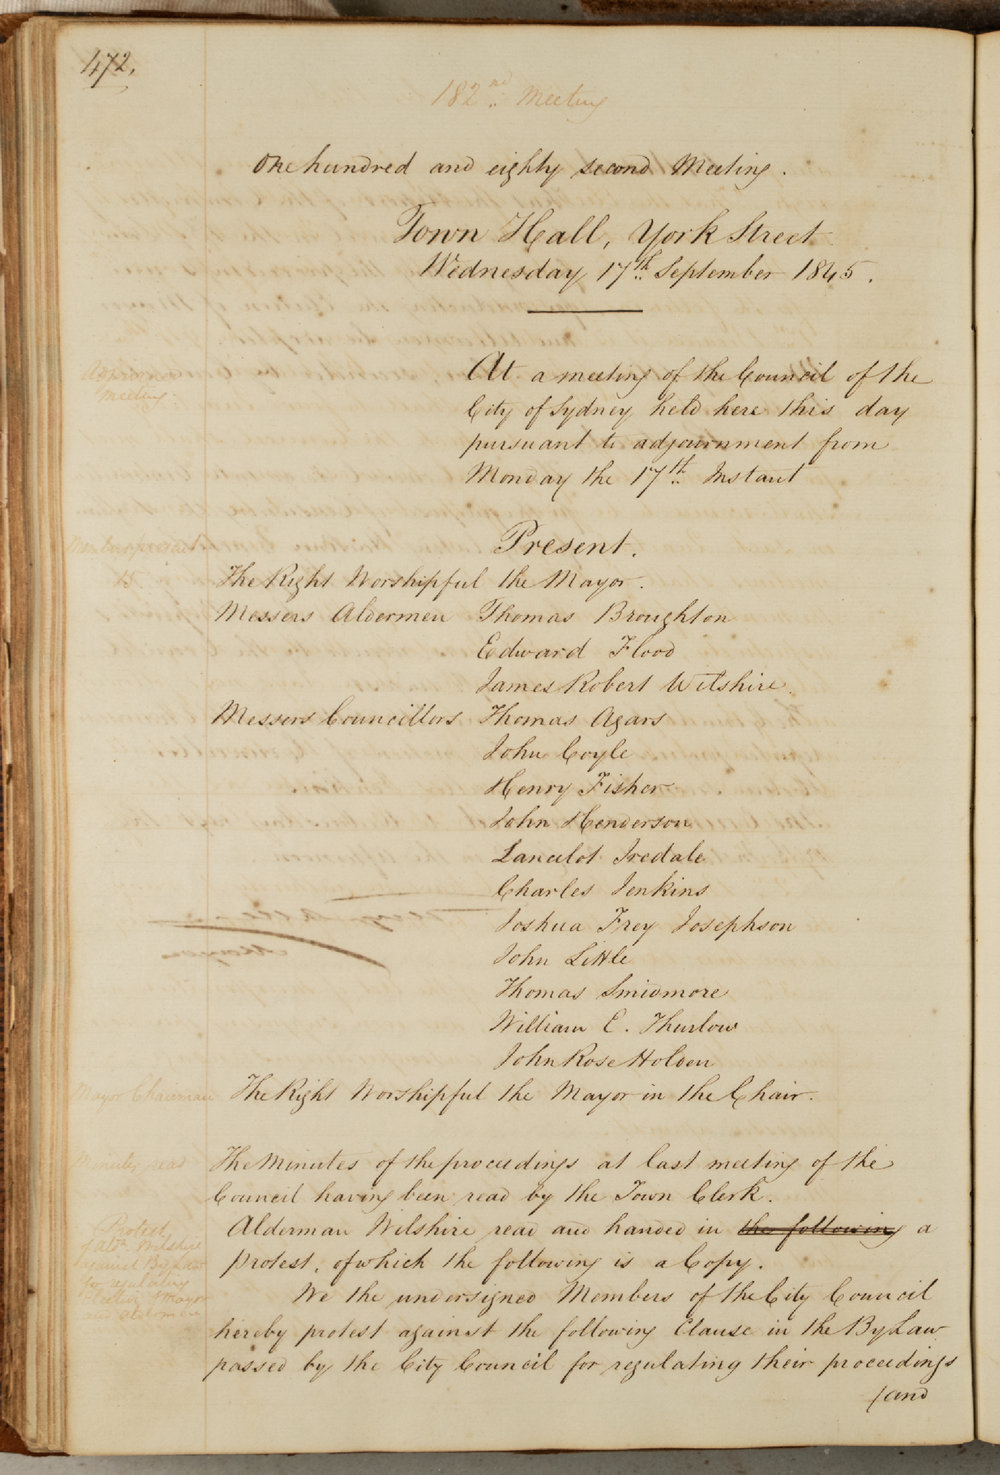 472.
182nd Meeting
One hundred and eighty second Meeting.
Town Hall, York Street
Wednesday 17th September 1845.
Adjourned
Meeting.
At a meeting of the Council of the
City of Sydney held here this day
pursuant to adjournment from
Monday the 17th Instant
Members present
15
Present.
The Right Worshipful the Mayor.
Messers Aldermen Thomas Broughton
Edward Flood
James Robert Wilshire.
Messers Councillors Thomas Agars
John Coyle
Henry Fisher
John Henderson
Lancelot Iredale
Charles Jenkins
Joshua Frey Josephson
John Little
Thomas Smidmore
William E. Thurlow
John Rose Holden
Mayor Chairman
The Right Worshipful the Mayor in the Chair.
Minutes read
The Minutes of the proceedings at last meeting of the
Council having been read by the Town Clerk.
Protest
of Aldn. Wilshire
against By Law
to regulating
Mayor
Alderman Wilshire read and handed in the following a
protest, of which the following is a Copy.
We the undersigned Members of the City Council
hereby protest against the following Clause in the By Law
passed by the City Council for regulating their proceedings
/and